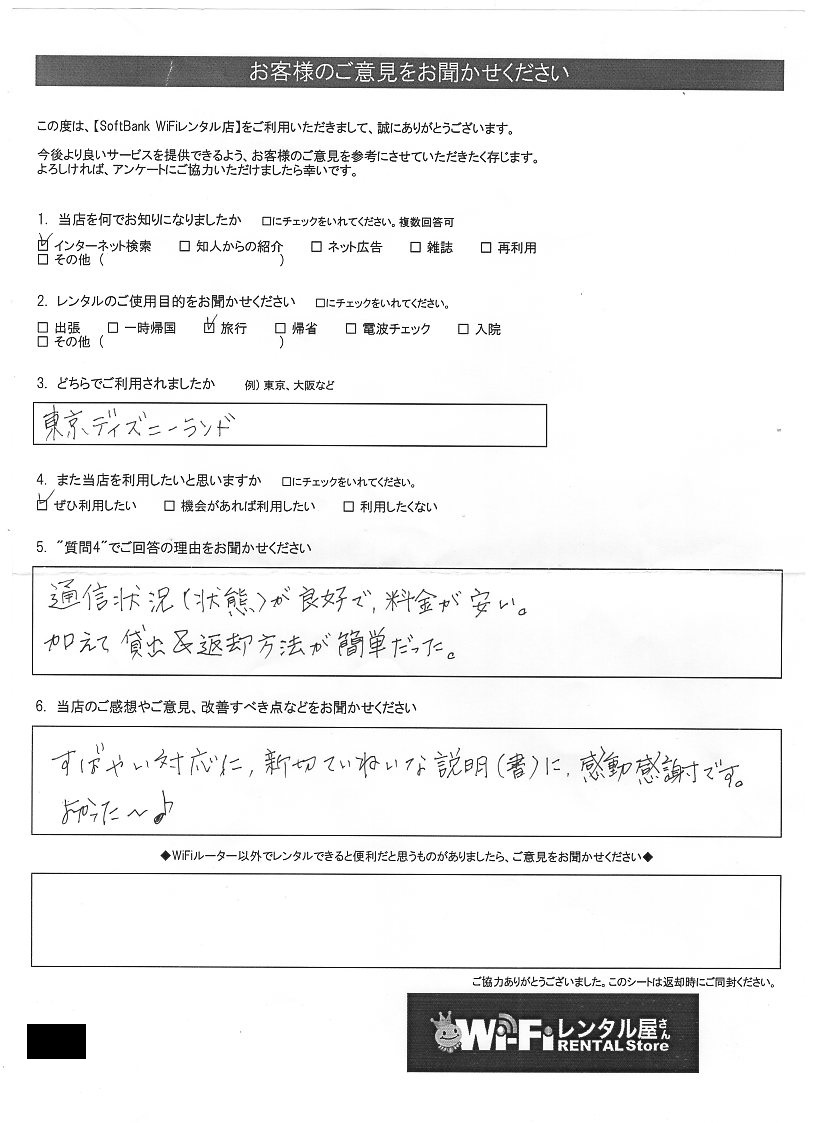 お客様のご意見をお聞かせください
この度は、【SoftBank WiFiレンタル店】をご利用いただきまして、誠にありがとうございます。
今後より良いサービスを提供できるよう、お客様のご意見を参考にさせていただきたく存じます。
よろしければ、アンケートにご協力いただけましたら幸いです。
1. 当店を何でお知りになりましたか □にチェックをいれてください。複数回答可
☑ インターネット検索 □ 知人からの紹介 □ ネット広告 □ 雑誌 □ 再利用
□ その他 ( )
2. レンタルのご使用目的をお聞かせください □にチェックをいれてください。
□ 出張 □ 一時帰国 ☑ 旅行 □ 帰省 □ 電波チェック □ 入院
□ その他 ( )
3. どちらでご利用されましたか 例) 東京、大阪など
東京、ディズニーランド
4. また当店を利用したいと思いますか □にチェックをいれてください。
☑ ぜひ利用したい □ 機会があれば利用したい □ 利用したくない
5. "質問4"でご回答の理由をお聞かせください
通信状況(状態)が良好で、料金が安い。
加えて貸出&返却方法が簡単だった。
6. 当店のご感想やご意見、改善すべき点などをお聞かせください
すばやい対応に、新切ていねいな説明(書)に、感動感謝です。
よかった〜♪
◆WiFiルーター以外でレンタルできると便利だと思うものがありましたら、ご意見をお聞かせください◆
ご協力ありがとうございました。このシートは返却時にご同封ください。
Wi-Fiレンタル屋さん
RENTAL Store